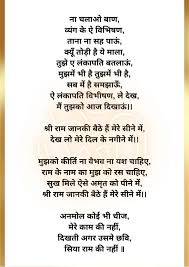 ना चलाओ बाण,
व्यंग के ऐ विभिषण,
ताना ना सह पाऊं,
क्यूँ तोड़ी है ये माला,
तुझे ए लंकापति बतलाऊं,
मुझमें भी है तुझमें भी है,
सब में है समझाऊँ,
ऐ लंकापति विभीषण, ले देख,
मैं तुझको आज दिखाऊं।।
श्री राम जानकी बैठे हैं मेरे सीने में,
देख लो मेरे दिल के नगीने में।।
मुझको कीर्ति ना वैभव ना यश चाहिए,
राम के नाम का मुझ को रस चाहिए,
सुख मिले ऐसे अमृत को पीने में,
श्री राम जानकी बैठे हैं मेरे सीने में।।
अनमोल कोई भी चीज,
मेरे काम की नहीं,
दिखती अगर उसमे छवि,
सिया राम की नहीं ॥